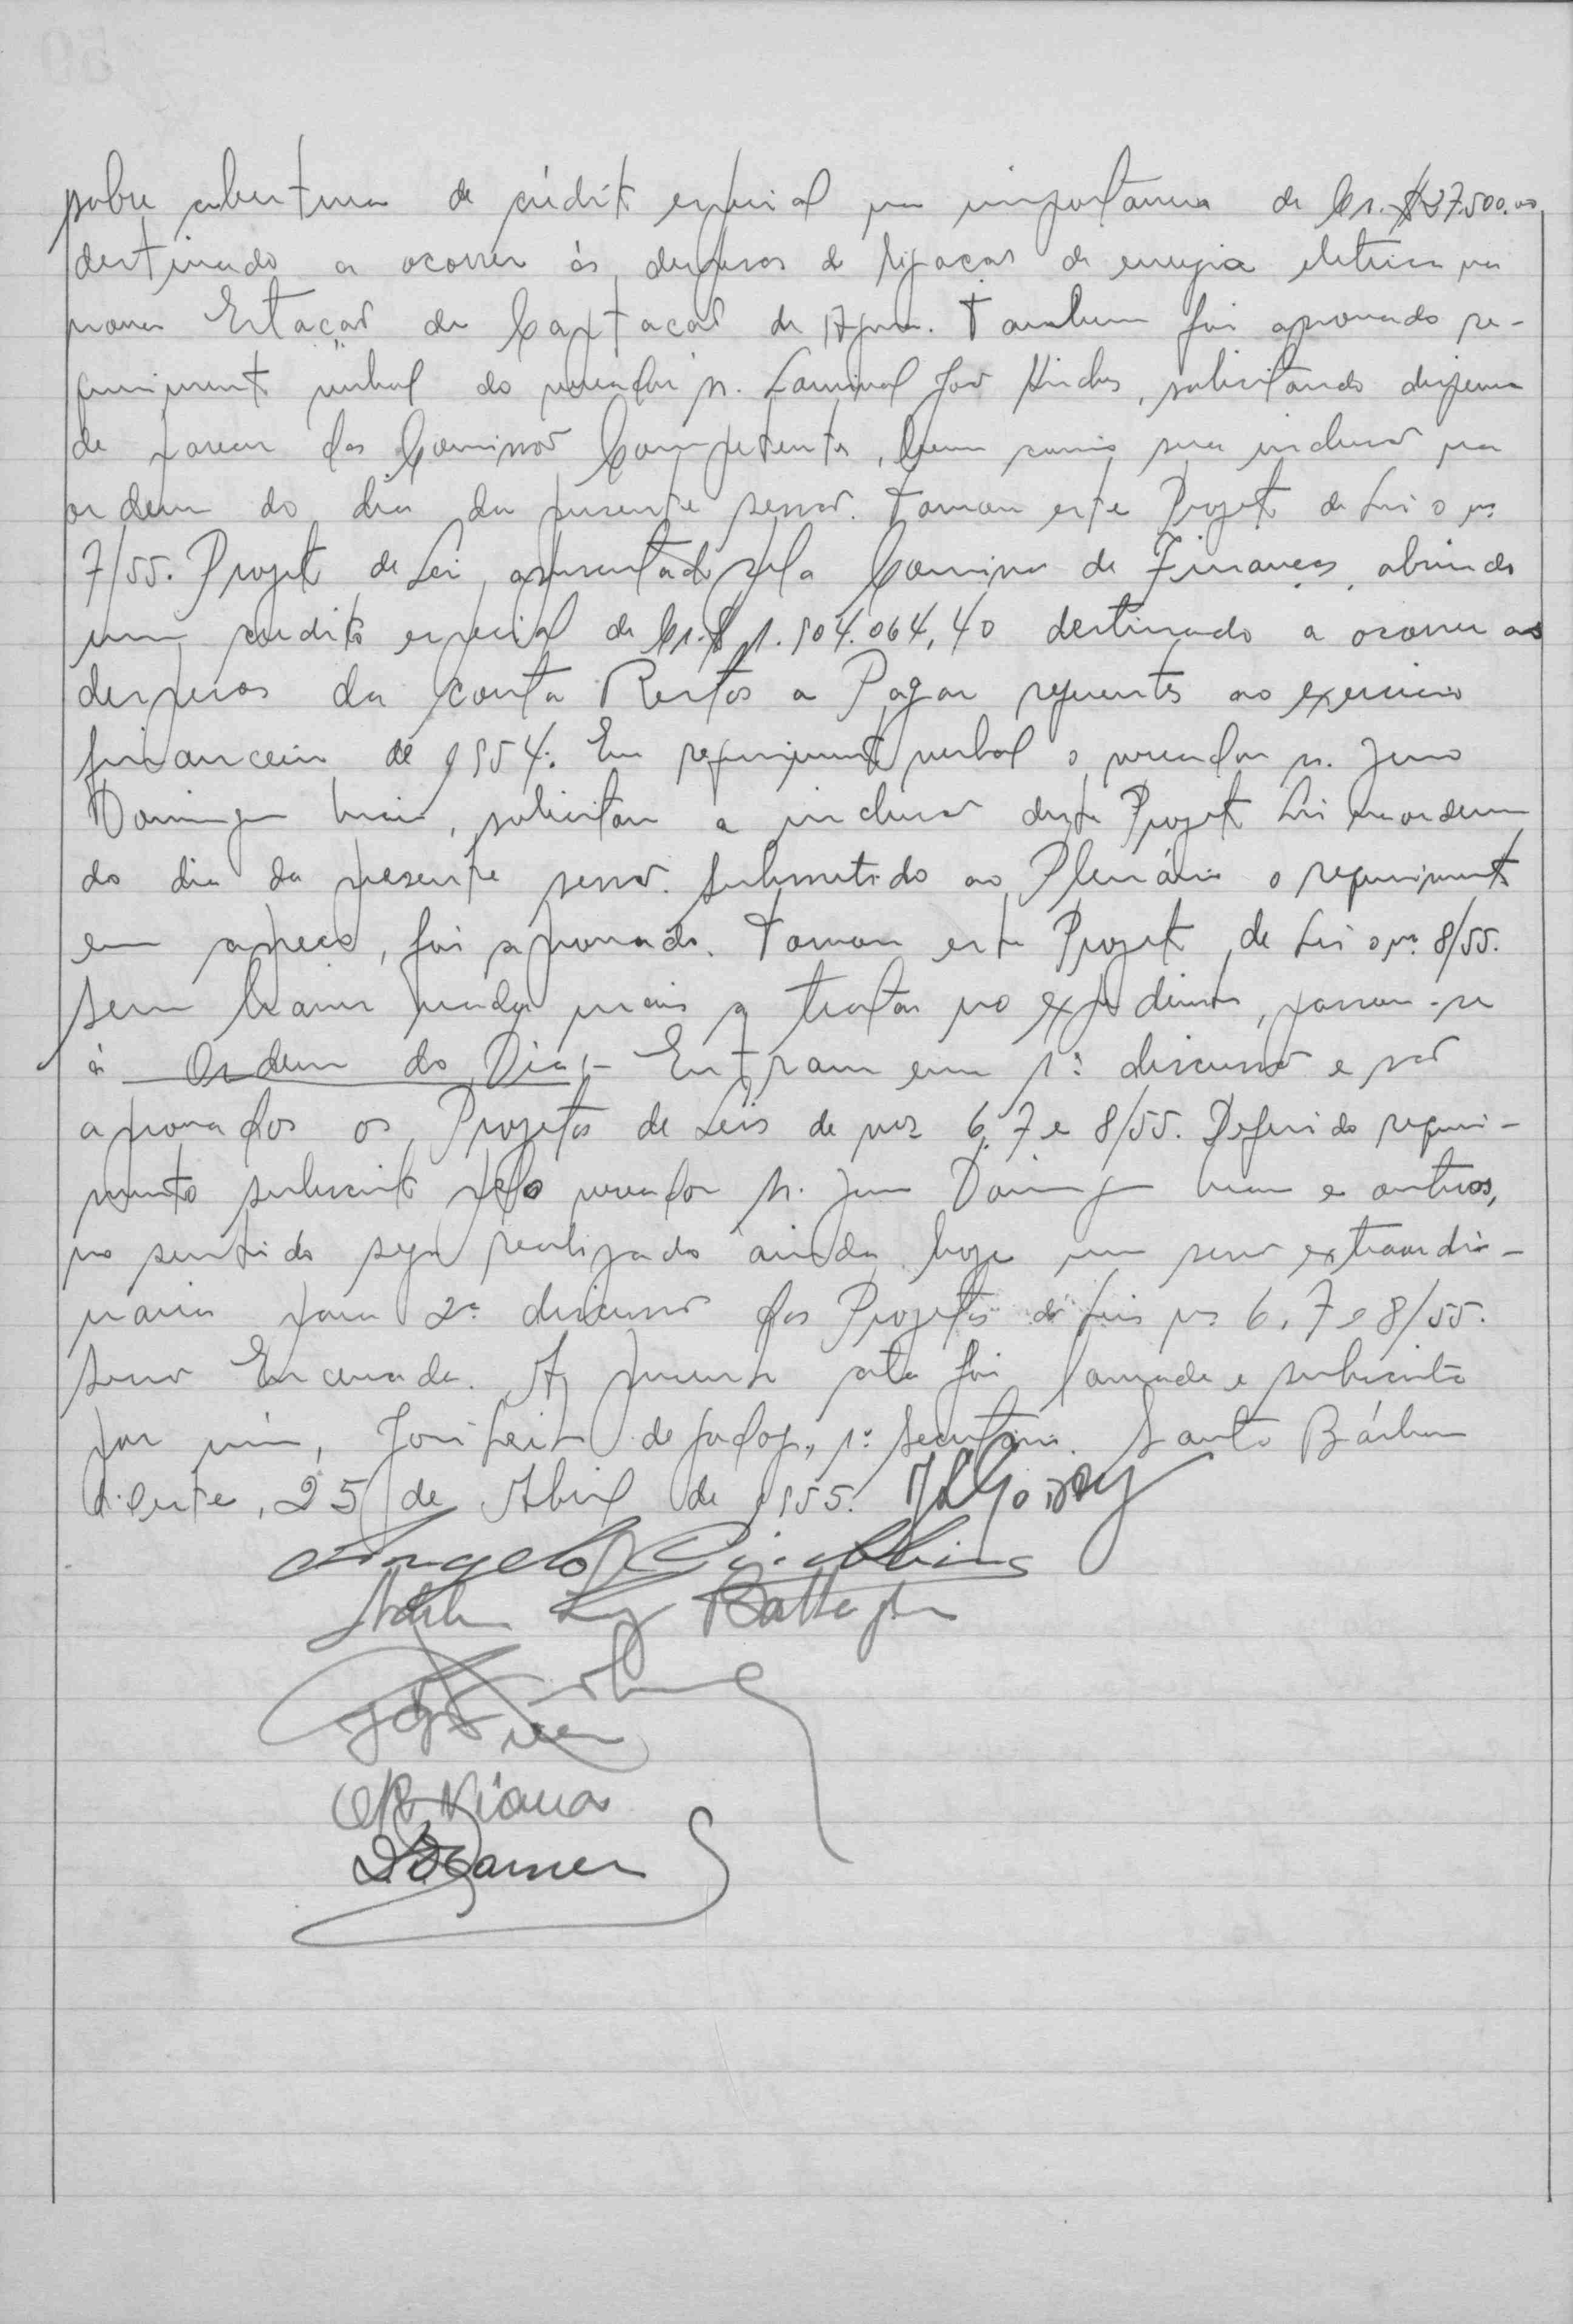 sobre abertura de crédito especial na importância de Cr.$ 37.500,00
destinado a ocorrer às despesas de ligação de energia eletrica na
nova Estação de Captação de Agua. Tambem foi aprovado re-
querimento verbal do vereador sr. solicitando dispensa
de parecer das Comissão Competente, bem como sua inclusão na
ordem do dia da presente sessão. Tomou este Projeto de Lei o nº
7/55. Projeto de Lei, apresentado pela Comissão de Finanças, abrindo
um credito especial de Cr.$ 1.904.064,40 destinado a ocorrer as
despesas da conta Restos a Pagar referentes ao exercicio
financeiro de 1954. Em requerimento verbal o vereador sr.
solicitou a inclusão deste Projeto Lei na ordem
do dia da presente sessão. Submetido ao Plenário o requerimento
em apreço, foi aprovado. Tomou este Projeto de Lei o nº 8/55.
Sem haver nada mais a tratar no expediente, passou-se
à Ordem do Dia - Entram em 1ª discussão e são
aprovados os Projetos de Leis de nos 6, 7 e 8/55. Deferido requeri-
mento subscrito pelo vereador sr. e outros,
no sentido seja realizado ainda hoje uma sessão extraordi-
naria para 2ª discussão dos Projetos de Leis ns 6, 7 e 8/55.
Sessão Encerrada. A presente ata foi lavrada e subscrita
por mim, José Leite de Godoy, 1º Secretário. Santa Bárbara
d'Oeste, 25 de Abril de 1955. JLGodoy
Angelo
Battagin
Viana